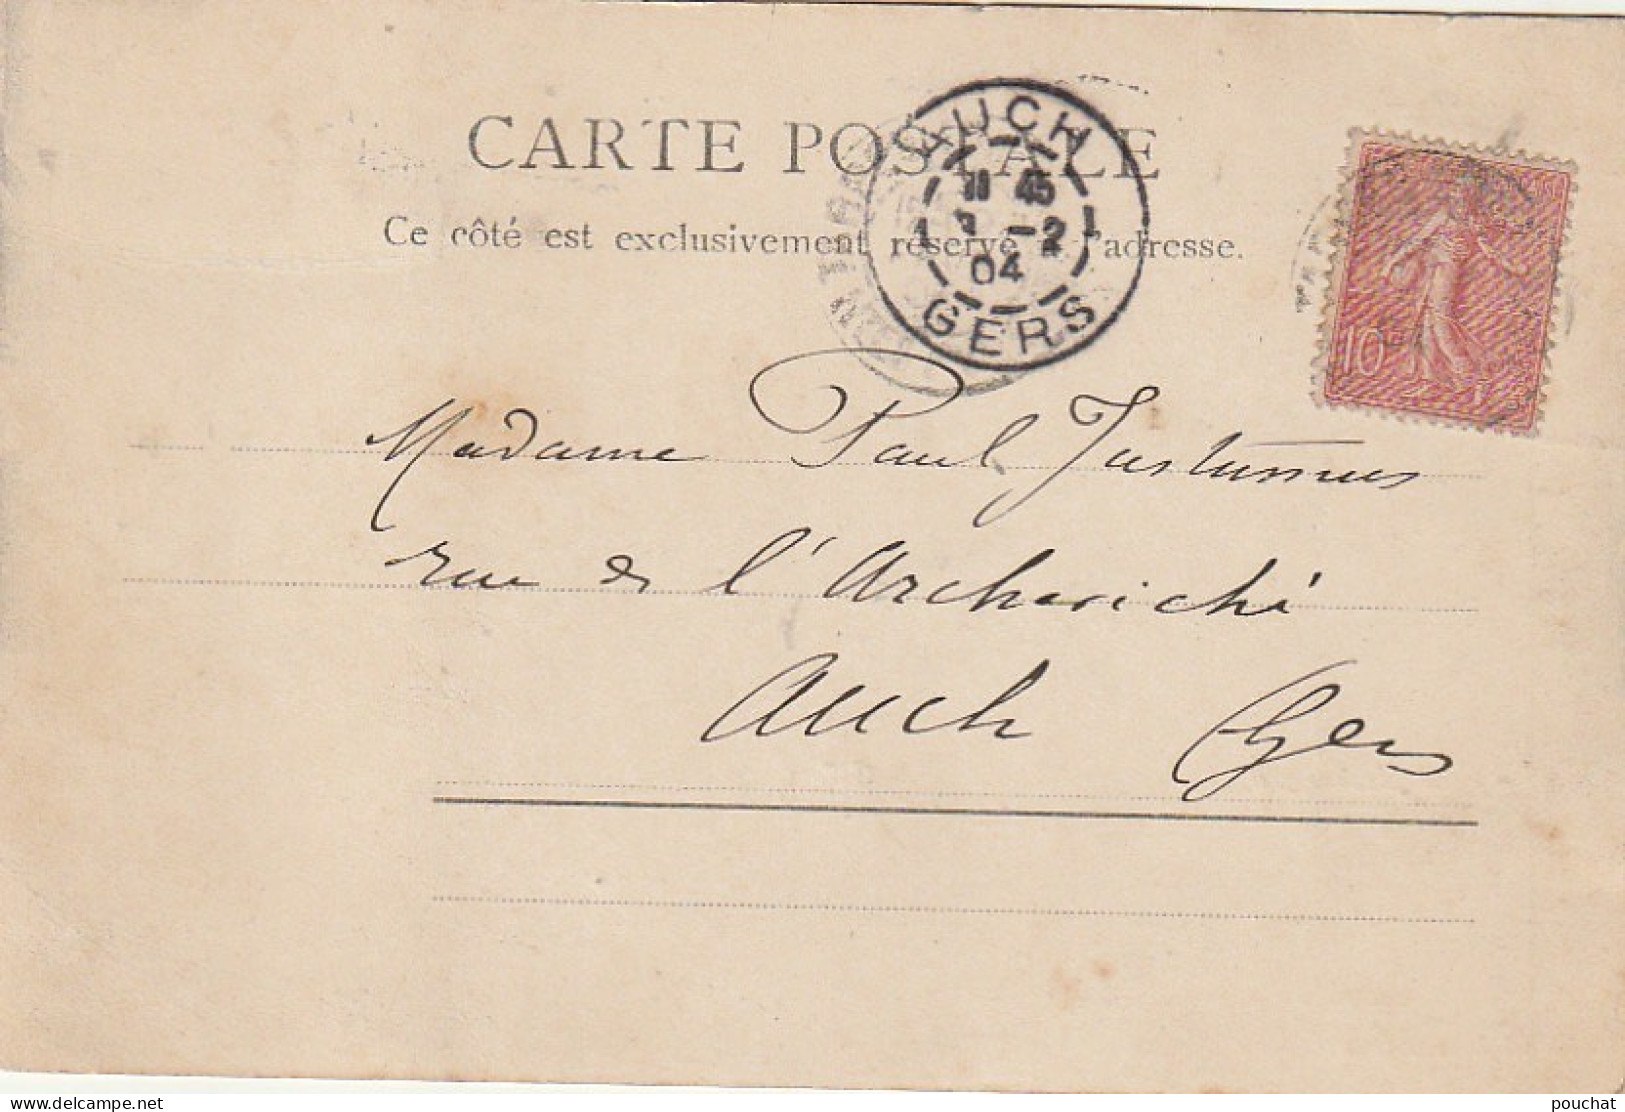 CARTE POSTALE
Ce côté est exclusivement réservé à l'adresse.
AUCH
45
-2
04
GERS
10
Madame Paul
rue de l'
Auch Gers
delcampe.net
pouchat